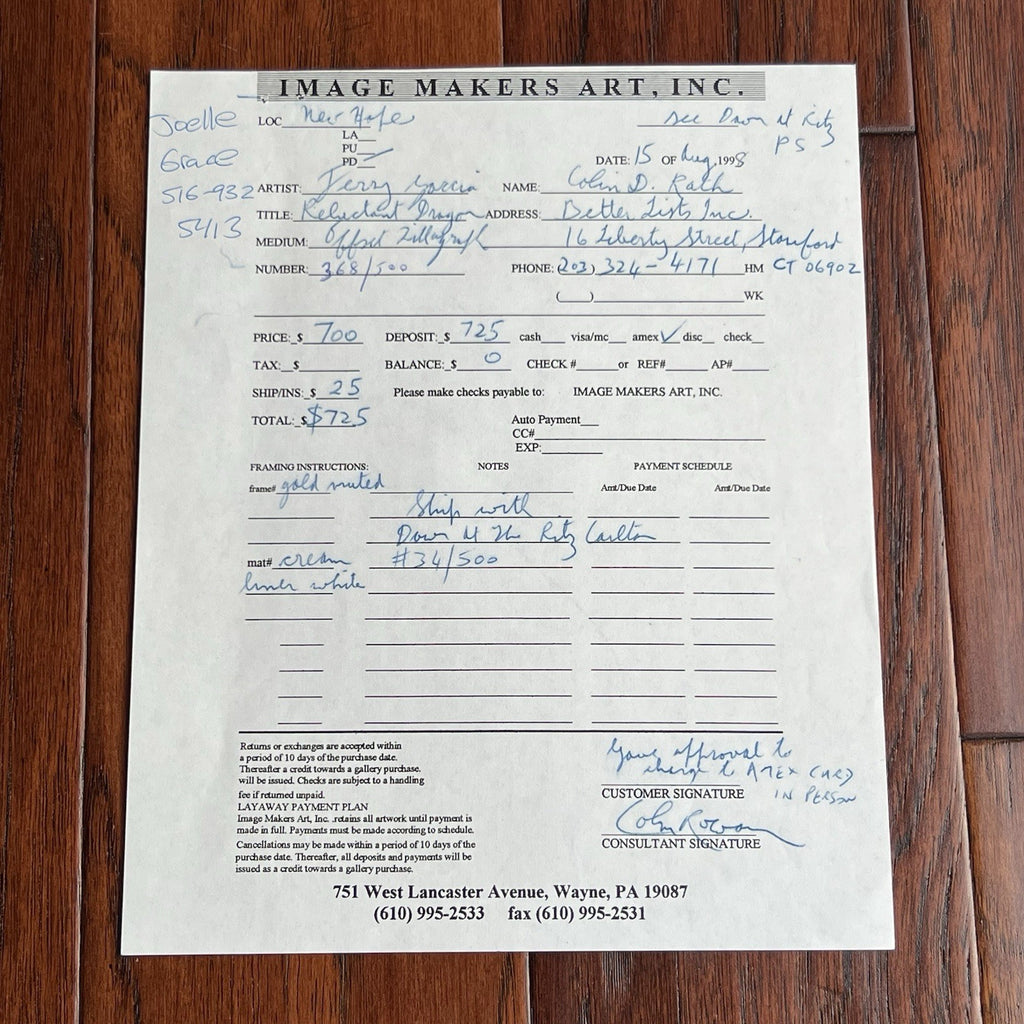 IMAGE MAKERS ART, INC.
Joelle
Grace
516-932
5413
LOC New Hope
see Dawn at Ritz
PS
LA
PU
PD ✓
DATE: 15 OF Aug, 1998
ARTIST: Jerry Garcia NAME: Colin D. Rath
TITLE: Reluctant Dragon ADDRESS: Better Lists Inc.
MEDIUM: Offset 16 Liberty Street, Stamford
NUMBER: 368/500 PHONE: (203) 324-4171 HM CT 06902
( ) WK
PRICE: $ 700 DEPOSIT: $ 725 cash visa/mc amex ✓ disc check
TAX: $ BALANCE: $ 0 CHECK # or REF# AP#
SHIP/INS: $ 25 Please make checks payable to: IMAGE MAKERS ART, INC.
TOTAL: $ $725
Auto Payment
CC#
EXP:
FRAMING INSTRUCTIONS: NOTES PAYMENT SCHEDULE
frame# gold muted Amt/Due Date Amt/Due Date
Ship with
Dawn at The Ritz Carlton
mat# cream #34/500
liner white
Returns or exchanges are accepted within
a period of 10 days of the purchase date.
Thereafter a credit towards a gallery purchase.
will be issued. Checks are subject to a handling
fee if returned unpaid.
LAYAWAY PAYMENT PLAN
Image Makers Art, Inc. .retains all artwork until payment is
made in full. Payments must be made according to schedule.
Cancellations may be made within a period of 10 days of the
purchase date. Thereafter, all deposits and payments will be
issued as a credit towards a gallery purchase.
gave approval to
charge to AMEX CARD
IN PERSON
CUSTOMER SIGNATURE
CONSULTANT SIGNATURE
751 West Lancaster Avenue, Wayne, PA 19087
(610) 995-2533 fax (610) 995-2531